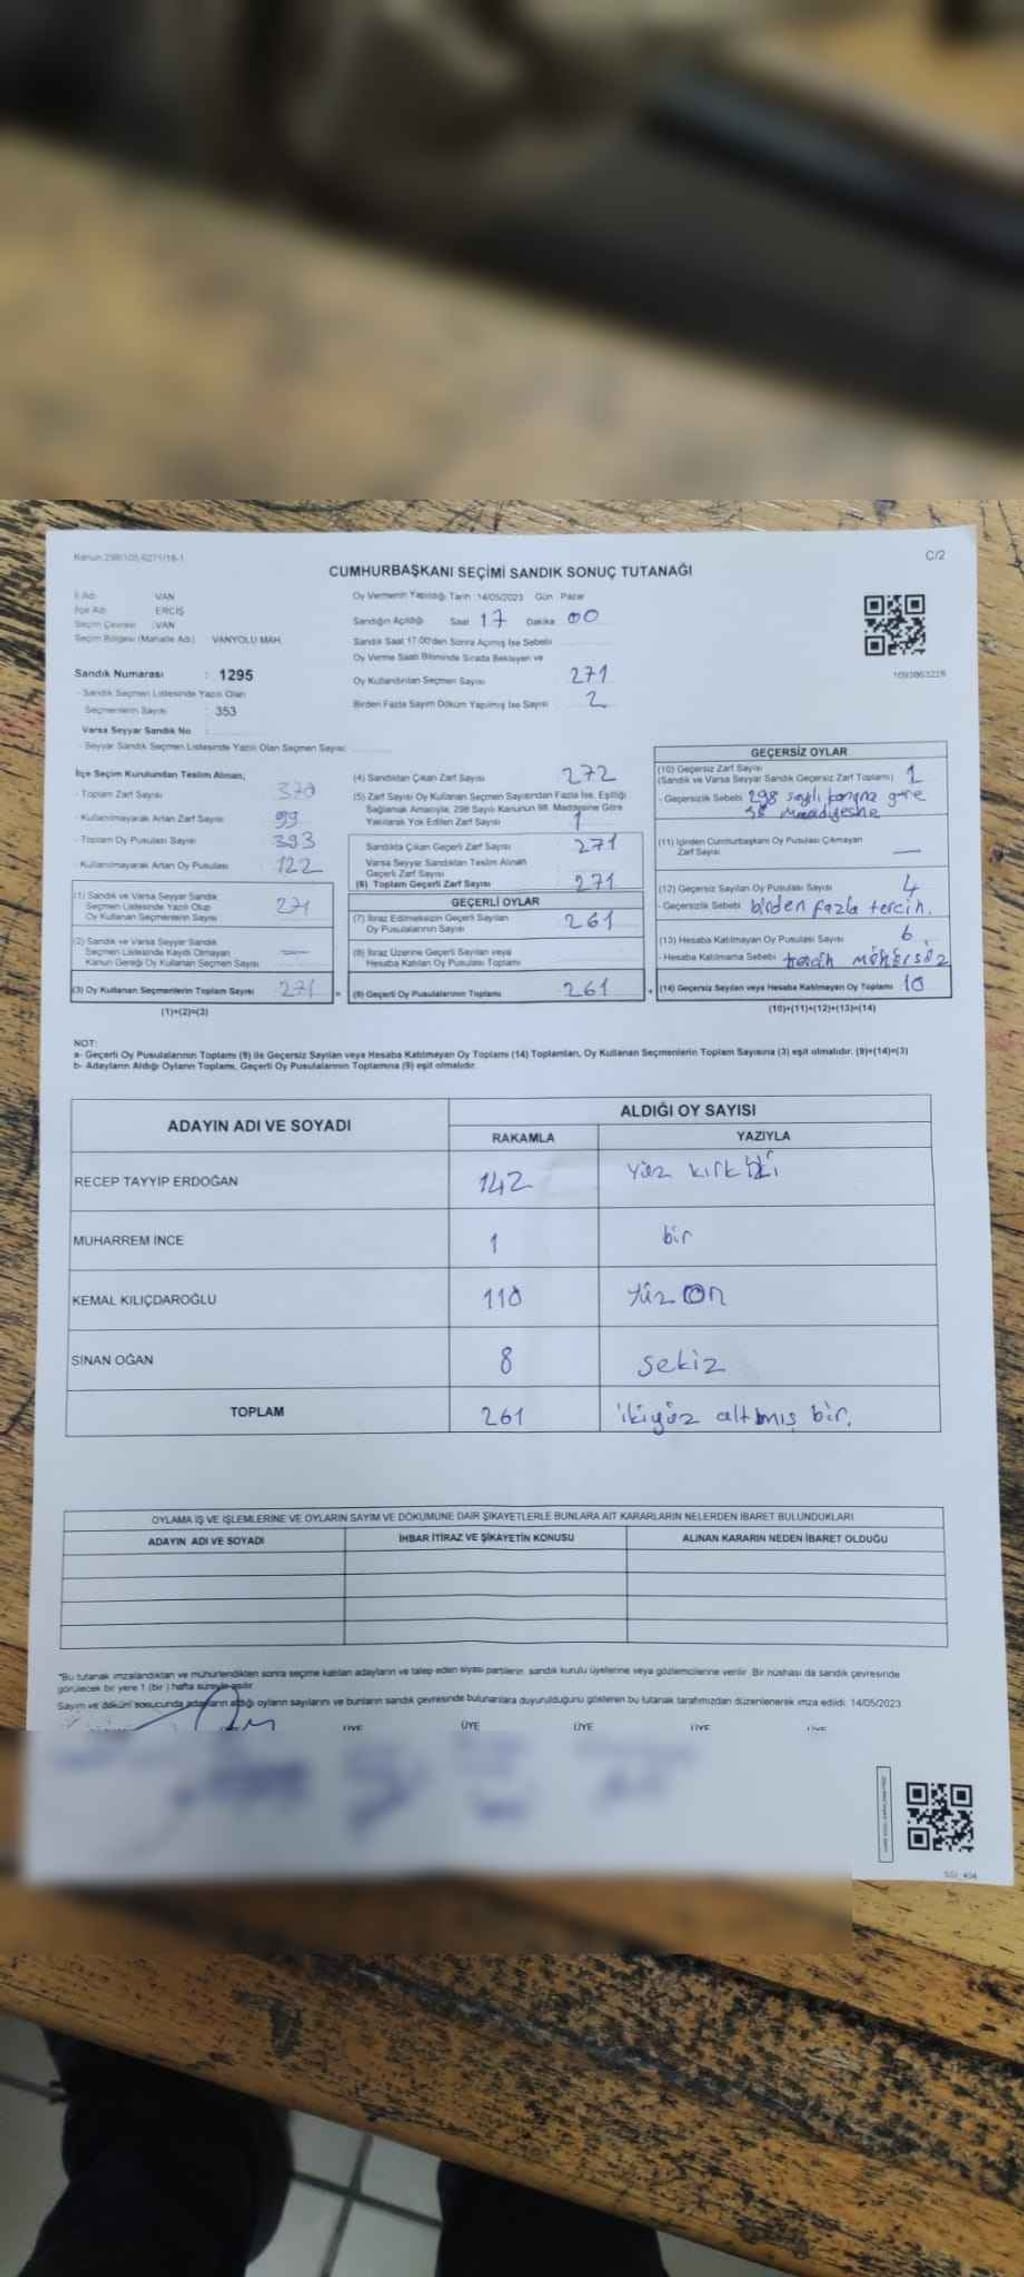 Kanun:298/105,6271/18-1
C/2
CUMHURBAŞKANI SEÇİMİ SANDIK SONUÇ TUTANAĞI
İl Adı VAN
İlçe Adı ERCİŞ
Seçim Çevresi :VAN
Seçim Bölgesi (Mahalle Adı) VANYOLU MAH.
Sandık Numarası : 1295
- Sandık Seçmen Listesinde Yazılı Olan
Seçmenlerin Sayısı : 353
Varsa Seyyar Sandık No
- Seyyar Sandık Seçmen Listesinde Yazılı Olan Seçmen Sayısı
Oy Vermenin Yapıldığı Tarih :14/05/2023 Gün : Pazar
Sandığın Açıldığı Saat 17 Dakika 00
Sandık Saat 17:00'den Sonra Açılmış İse Sebebi
Oy Verme Saati Bitiminde Sırada Bekleyen ve
Oy Kullandırılan Seçmen Sayısı 271
Birden Fazla Sayım Döküm Yapılmış İse Sayısı 2
İlçe Seçim Kurulundan Teslim Alınan;
- Toplam Zarf Sayısı 370
- Kullanılmayarak Artan Zarf Sayısı 99
- Toplam Oy Pusulası Sayısı 393
- Kullanılmayarak Artan Oy Pusulası 122
(1) Sandık ve Varsa Seyyar Sandık
Seçmen Listesinde Yazılı Olup
Oy Kullanan Seçmenlerin Sayısı 271
(2) Sandık ve Varsa Seyyar Sandık
Seçmen Listesinde Kaydı Olmayan
Kanun Gereği Oy Kullanan Seçmen Sayısı —
(3) Oy Kullanan Seçmenlerin Toplam Sayısı 271 =
(1)+(2)=(3)
(4) Sandıktan Çıkan Zarf Sayısı 272
(5) Zarf Sayısı Oy Kullanan Seçmen Sayısından Fazla İse, Eşitliği
Sağlamak Amacıyla, 298 Sayılı Kanunun 98. Maddesine Göre
Yakılarak Yok Edilen Zarf Sayısı 1
Sandıkta Çıkan Geçerli Zarf Sayısı 271
Varsa Seyyar Sandıktan Teslim Alınan
Geçerli Zarf Sayısı
(6) Toplam Geçerli Zarf Sayısı 271
GEÇERLİ OYLAR
(7) İtiraz Edilmeksizin Geçerli Sayılan
Oy Pusulalarının Sayısı 261
(8) İtiraz Üzerine Geçerli Sayılan veya
Hesaba Katılan Oy Pusulası Toplamı
(9) Geçerli Oy Pusulalarının Toplamı 261 +
GEÇERSİZ OYLAR
(10) Geçersiz Zarf Sayısı
(Sandık ve Varsa Seyyar Sandık Geçersiz Zarf Toplamı) 1
- Geçersizlik Sebebi 298 sayılı göre
(11) İçinden Cumhurbaşkanı Oy Pusulası Çıkmayan
Zarf Sayısı —
(12) Geçersiz Sayılan Oy Pusulası Sayısı 4
- Geçersizlik Sebebi birden fazla tercih.
(13) Hesaba Katılmayan Oy Pusulası Sayısı 6
- Hesaba Katılmama Sebebi tercih
(14) Geçersiz Sayılan veya Hesaba Katılmayan Oy Toplamı 10
(10)+(11)+(12)+(13)=(14)
NOT:
a- Geçerli Oy Pusulalarının Toplamı (9) ile Geçersiz Sayılan veya Hesaba Katılmayan Oy Toplamı (14) Toplamları, Oy Kullanan Seçmenlerin Toplam Sayısına (3) eşit olmalıdır. (9)+(14)=(3)
b- Adayların Aldığı Oyların Toplamı, Geçerli Oy Pusulalarının Toplamına (9) eşit olmalıdır.
ADAYIN ADI VE SOYADI ALDIĞI OY SAYISI
RAKAMLA YAZIYLA
RECEP TAYYİP ERDOĞAN 142 yüz kırk iki
MUHARREM İNCE 1 bir
KEMAL KILIÇDAROĞLU 110 yüz on
SİNAN OĞAN 8 sekiz
TOPLAM 261 ikiyüz altmış bir.
OYLAMA İŞ VE İŞLEMLERİNE VE OYLARIN SAYIM VE DÖKÜMÜNE DAİR ŞİKAYETLERLE BUNLARA AİT KARARLARIN NELERDEN İBARET BULUNDUKLARI
ADAYIN ADI VE SOYADI İHBAR İTİRAZ VE ŞİKAYETİN KONUSU ALINAN KARARIN NEDEN İBARET OLDUĞU
*Bu tutanak imzalandıktan ve mühürlendikten sonra seçime katılan adayların ve talep eden siyasi partilerin, sandık kurulu üyelerine veya gözlemcilerine verilir. Bir nüshası da sandık çevresinde
görülecek bir yere 1 (bir ) hafta süreyle asılır.
Sayım ve döküm sonucunda adayların aldığı oyların sayılarını ve bunların sandık çevresinde bulunanlara duyurulduğunu gösteren bu tutanak tarafımızdan düzenlenerek imza edildi. 14/05/2023
ÜYE ÜYE ÜYE ÜYE ÜYE